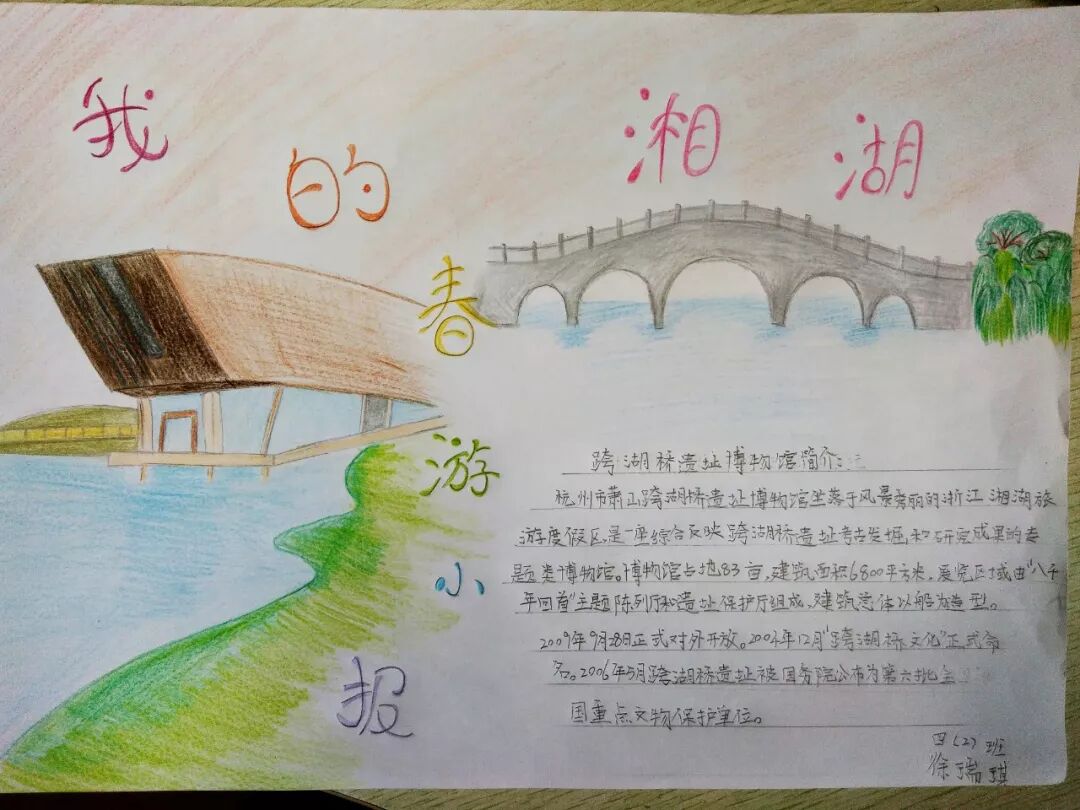 我的湘湖
春游小报
跨湖桥遗址博物馆简介:
杭州市萧山跨湖桥遗址博物馆坐落于风景秀丽的浙江湘湖旅
游度假区,是一座综合反映跨湖桥遗址考古发掘和研究成果的专
题类博物馆。博物馆占地83亩,建筑面积6800平方米,展览区域由“八千
年回首”主题陈列厅和遗址保护厅组成、建筑总体以船为造型。
2009年9月28日正式对外开放。2004年12月“跨湖桥文化”正式命
名。2006年5月跨湖桥遗址被国务院公布为第六批全
国重点文物保护单位。
四(2)班
徐瑞琪